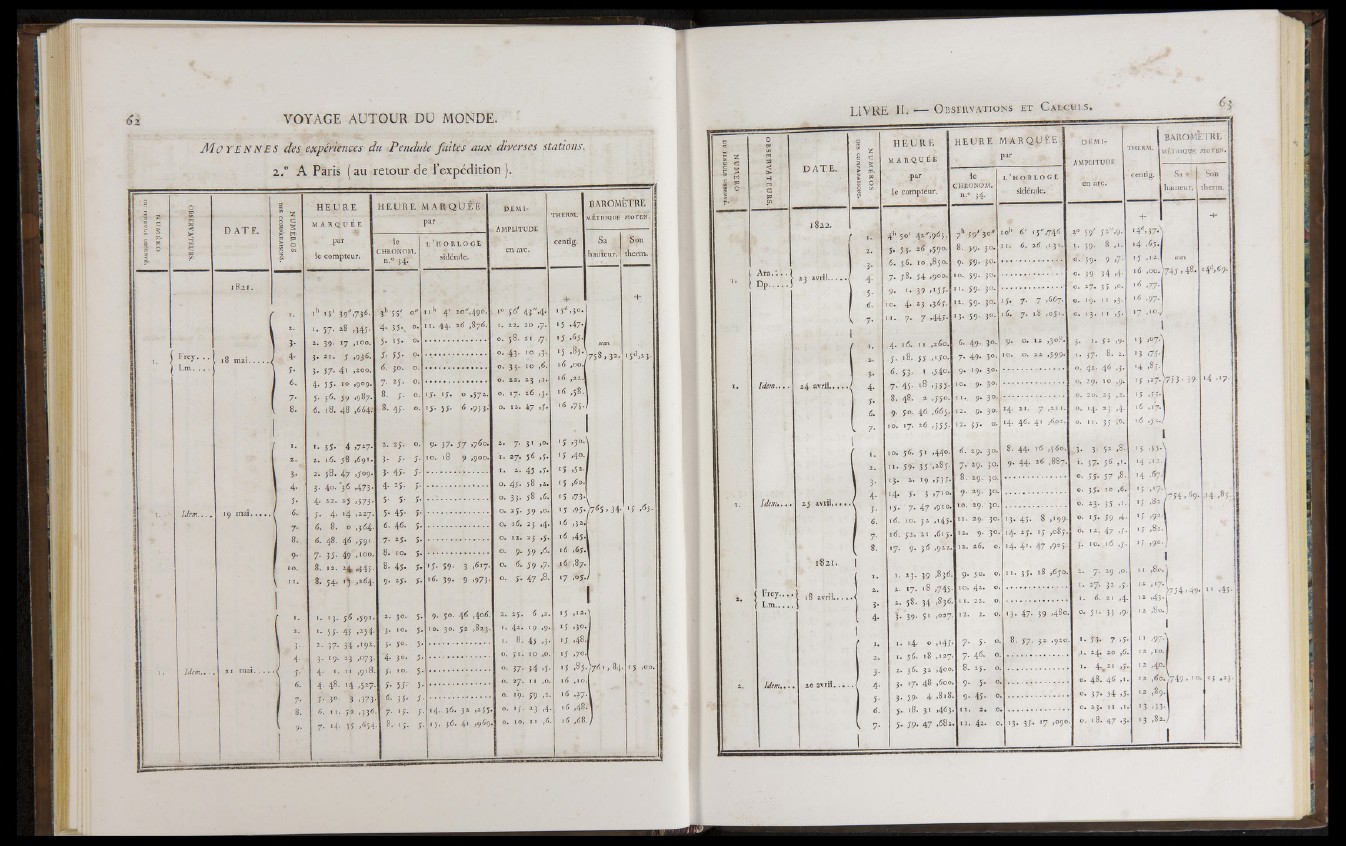 62 VOYAGE AUTOUR DU MONDE.
MOYENNES des expériences du Pendule faites aux diverses stations.
2.° A Paris (au retour de l'expédition).
NUMÉRO
OBSERVATEURS.
DATE.
NUMÉROS DES COMPARAISONS.
HEURE MARQUÉE par le compteur.
HEURE MARQUÉE par
le CHRONOM. n.° 34.
L'HORLOGE sidérale.
DEMI-AMPLITUDE en arc.
THERM. centig.
BAROMÈTRE MÉTRIQUE MOYEN.
Sa hauteur.
Son therm.
+ +
1821.
1. Frey... Lm.... 18 mai.....
1. 1h 15' 39",736. 3h 55' 0" 11h 4' 20",490. 1° 56' 43",4. 15d,30.
2. 1. 57. 28 ,345. 4. 35. 0. 11. 44. 26 ,876. 1. 22. 20 ,7. 15 ,47.
3. 2. 39. 17 ,100. 5. 15. 0. 0. 58. 21 ,7. 15 ,65.
4. 3. 21. 5 ,936. 5. 55. 0. 0. 43. 10 ,3. 15 ,85. mm 758,32. 15d,23.
5. 3. 57. 41 ,200. 6. 30. 0. 0. 33. 10 ,6. 16 ,00.
6. 4. 55. 10 ,909. 7. 25. 0. 0. 22. 23 ,1. 16 ,22.
7. 5. 36. 59 ,987. 8. 5. 0. 15. 15. 0 ,572. 0. 17. 26 ,3. 16 ,58.
8. 6. 18. 48 ,664. 8. 45. 0. 15. 55. 6 ,953. 0. 12. 47 ,5. 16 ,75.
1. Idem.... 19 mai.....
1. 1. 35. 4 ,727. 2. 25. 0. 9. 37. 57 ,760. 2. 7. 31 ,0. 15 ,30.
2. 2. 16. 58 ,691. 3. 5. 5. 10. 18 9 ,900. 1. 27. 56 ,5. 15 ,40.
3. 2. 58. 47 ,509. 3. 45. 5. 1. 2. 45 ,5. 15 ,52.
4. 3. 40. 36 ,473. 4. 25. 5. 0. 45. 58 ,2. 15 ,60.
5. 4. 22. 25 ,373. 5. 5. 5. 0. 33. 58 ,6. 15 ,73.
6. 5. 4. 14 ,227. 5. 45. 5. 0. 25. 39 ,0. 15 ,95. 765,34. 15 ,63.
7. 6. 8. 0 ,364. 6. 46. 5. 0. 16. 23 ,4. 16 ,32.
8. 6. 48. 46 ,591. 7. 25. 5. 0. 12. 25 ,5. 16 ,45.
9. 7. 35. 49 ,100. 8. 10. 5. 0. 9. 59 ,6. 16 ,65.
10. 8. 12. 24 ,445. 8. 45. 5. 15. 59. 3 ,617. 0. 6. 59 ,7. 16 ,87.
11. 8. 54. 13 ,264. 9. 25. 5. 16. 39. 9 ,973. 0. 5. 47 ,8. 17 ,05.
1. Idem.... 21 mai.....
1. 1. 13. 56 ,591. 2. 30. 5. 9. 50. 46 ,406. 2. 25. 6 ,2. 15 ,12.
2. 1. 55. 45 ,254. 3. 10. 5. 10. 30. 52 ,823. 1. 42. 19 ,9. 15 ,30.
3. 2. 37. 34 ,192. 3. 50. 5. 1. 8. 45 ,3. 15 ,48.
4. 3. 19. 23 ,073. 4. 30. 5. 0. 51. 10 ,0. 15 ,70.
5. 4. 1. 11 ,918. 5. 10. 5. 0. 37. 34 ,5. 15 ,85. 761,84. 15 ,00.
6. 4. 48. 14 ,527. 5. 55. 5. 0. 27. 11 ,0. 16 ,10.
7. 5. 30. 3 ,573. 6. 35. 5. 0. 19. 59 ,2. 16 ,27.
8. 6. 11. 52 ,336. 7. 15. 5. 14. 36. 32 ,255. 0. 15. 23 ,4. 16 ,48.
9. 7. 14. 35 ,654. 8. 15. 5. 15. 36. 41 ,969. 0. 10. 11 ,6. 16 ,68.
LIVRE II. — OBSERVATIONS ET CALCULS. 63
NUMÉRO
OBSERVATEURS.
DATE.
NUMÉROS DES COMPARAISONS.
HEURE MARQUÉE par le compteur.
HEURE MARQUÉE par
le CHRONOM. n.° 34.
L'HORLOGE sidérale.
DEMI-AMPLITUDE en arc.
THERM. centig.
BAROMÈTRE MÉTRIQUE MOYEN.
Sa hauteur.
Son therm.
+ +
1822.
1. Ara.... Dp..... 23 avril.....
1. 4h 50' 42",963. 7h 59' 30" 10h 6' 15",746. 2° 59' 52",9. 14d,37.
2. 5. 53. 26 ,590. 8. 39. 30. 11. 6. 26 ,131. 1. 59. 8 ,1. 14 ,65.
3. 6. 56. 10 ,850. 9. 59. 30. 0. 59. 9 ,7. 15 ,12. mm
4. 7. 58. 54 ,900. 10. 59. 30. 0. 39 34 ,4. 16 ,00. 745,48. 14d,69.
5. 9. 1. 39 ,155. 11. 59. 30. 0. 27. 35 ,0. 16 ,77.
6. 10. 4. 23 ,365. 12. 59. 30. 15. 7. 7 ,667. 0. 19. 11 ,3. 16 ,97.
7. 11. 7. 7 ,445. 13. 59. 30. 16. 7. 18 ,051. 0. 13. 11 ,5. 17 ,10.
1. Idem.... 24 avril.....
1. 4. 16. 11 ,260. 6. 49. 30. 9. 0. 12 ,308. 3. 1. 52 ,9. 13 ,07.
2. 5. 18. 55 ,150. 7. 49. 30. 10. 0. 22 ,599. 1. 57. 8. 2. 13 ,75.
3. 6. 53. 1 ,540. 9. 19. 30. 0. 42. 46 ,5. 14 ,85.
4. 7. 45. 18 ,335. 10. 9. 30. 0. 29. 10 ,9. 15 ,27. 753.39. 14 ,17.
5. 8. 48. 2 ,550. 11. 9. 30. 0. 20. 23 ,2. 15 ,55.
6. 9. 50. 46 ,665. 12. 9. 30. 14. 21. 7 ,211. 0. 14. 23 ,4. 16 ,17.
7. 10. 17. 26 ,355. 12. 35. 0. 14. 46. 41 ,602. 0. 11. 35 ,0. 16 ,52.
1. Idem.... 25 avril.....
1. 10. 56. 51 ,440. 6. 29. 30. 8. 44. 16 ,560. 3. 3. 52 ,8. 13 ,55.
2. 11. 59. 35 ,285. 7. 29. 30. 9. 44. 26 ,887. 1. 57. 56 ,1. 14 ,12.
3. 13. 2. 19 ,535. 8. 29. 30. 0. 55. 57 ,8. 14 ,67.
4. 14. 5. 3 ,710. 9. 29. 30. 0. 35. 10 ,6. 15 ,17. 754,69. 14 ,85.
5. 15. 7. 47 ,910. 10. 29. 30. 0. 23. 35 ,1. 15 ,82.
6. 16. 10. 32 ,145. 11. 29. 30. 13. 45. 8 ,199. 0. 15. 59 ,4. 15 ,92.
7. 16. 52. 21 ,615. 12. 9. 30. 14. 25. 15 ,085. 0. 12. 47 ,5. 15 ,82.
8. 17. 9. 36 ,922. 12. 26. 0. 14. 41. 47 ,925. 3. 10. 16 ,5. 15 ,90.
1821.
2. Frey.... Lm..... 18 avril.....
1. 1. 23. 39 ,836. 9. 50. 0. 11. 35. 18 ,650. 2. 7. 29 ,0. 11 ,80.
2. 2. 17. 18 ,745. 10. 42. 0. 1. 27. 32 ,5. 12 ,17.
3. 2. 58. 34 ,836. 11. 22. 0. 1. 6. 21 ,4. 12 ,43. 754,49. 11 ,45.
4. 3. 39. 51 ,027. 12. 2. 0. 13. 47. 39 ,480. 0. 51. 35 ,9. 12 ,80.
2. Idem.... 20 avril.....
1. 1. 14. 0 ,145. 7. 5. 0. 8. 57. 32 ,920. 1. 53. 7 ,5. 11 ,97.
2. 1. 56. 18 ,127. 7. 46. 0. 1. 24. 20 ,6. 12 ,10.
3. 2. 36. 32 ,400. 8. 25. 0. 1. 4. 21 ,5. 12 ,40.
4. 3. 17. 48 ,600. 9. 5. 0. 0. 48. 46 ,1. 12 ,60. 749,10. 13 ,23.
5. 3. 59. 4 ,818. 9. 45. 0. 0. 37. 34 ,5. 12 ,89.
6. 5. 18. 31 ,463. 11. 2. 0. 0. 23. 11 ,1. 13 ,33.
7. 5. 59. 47 ,682. 11. 42. 0. 13. 35. 17 ,090. 0. 18. 47 ,3. 13 ,82.